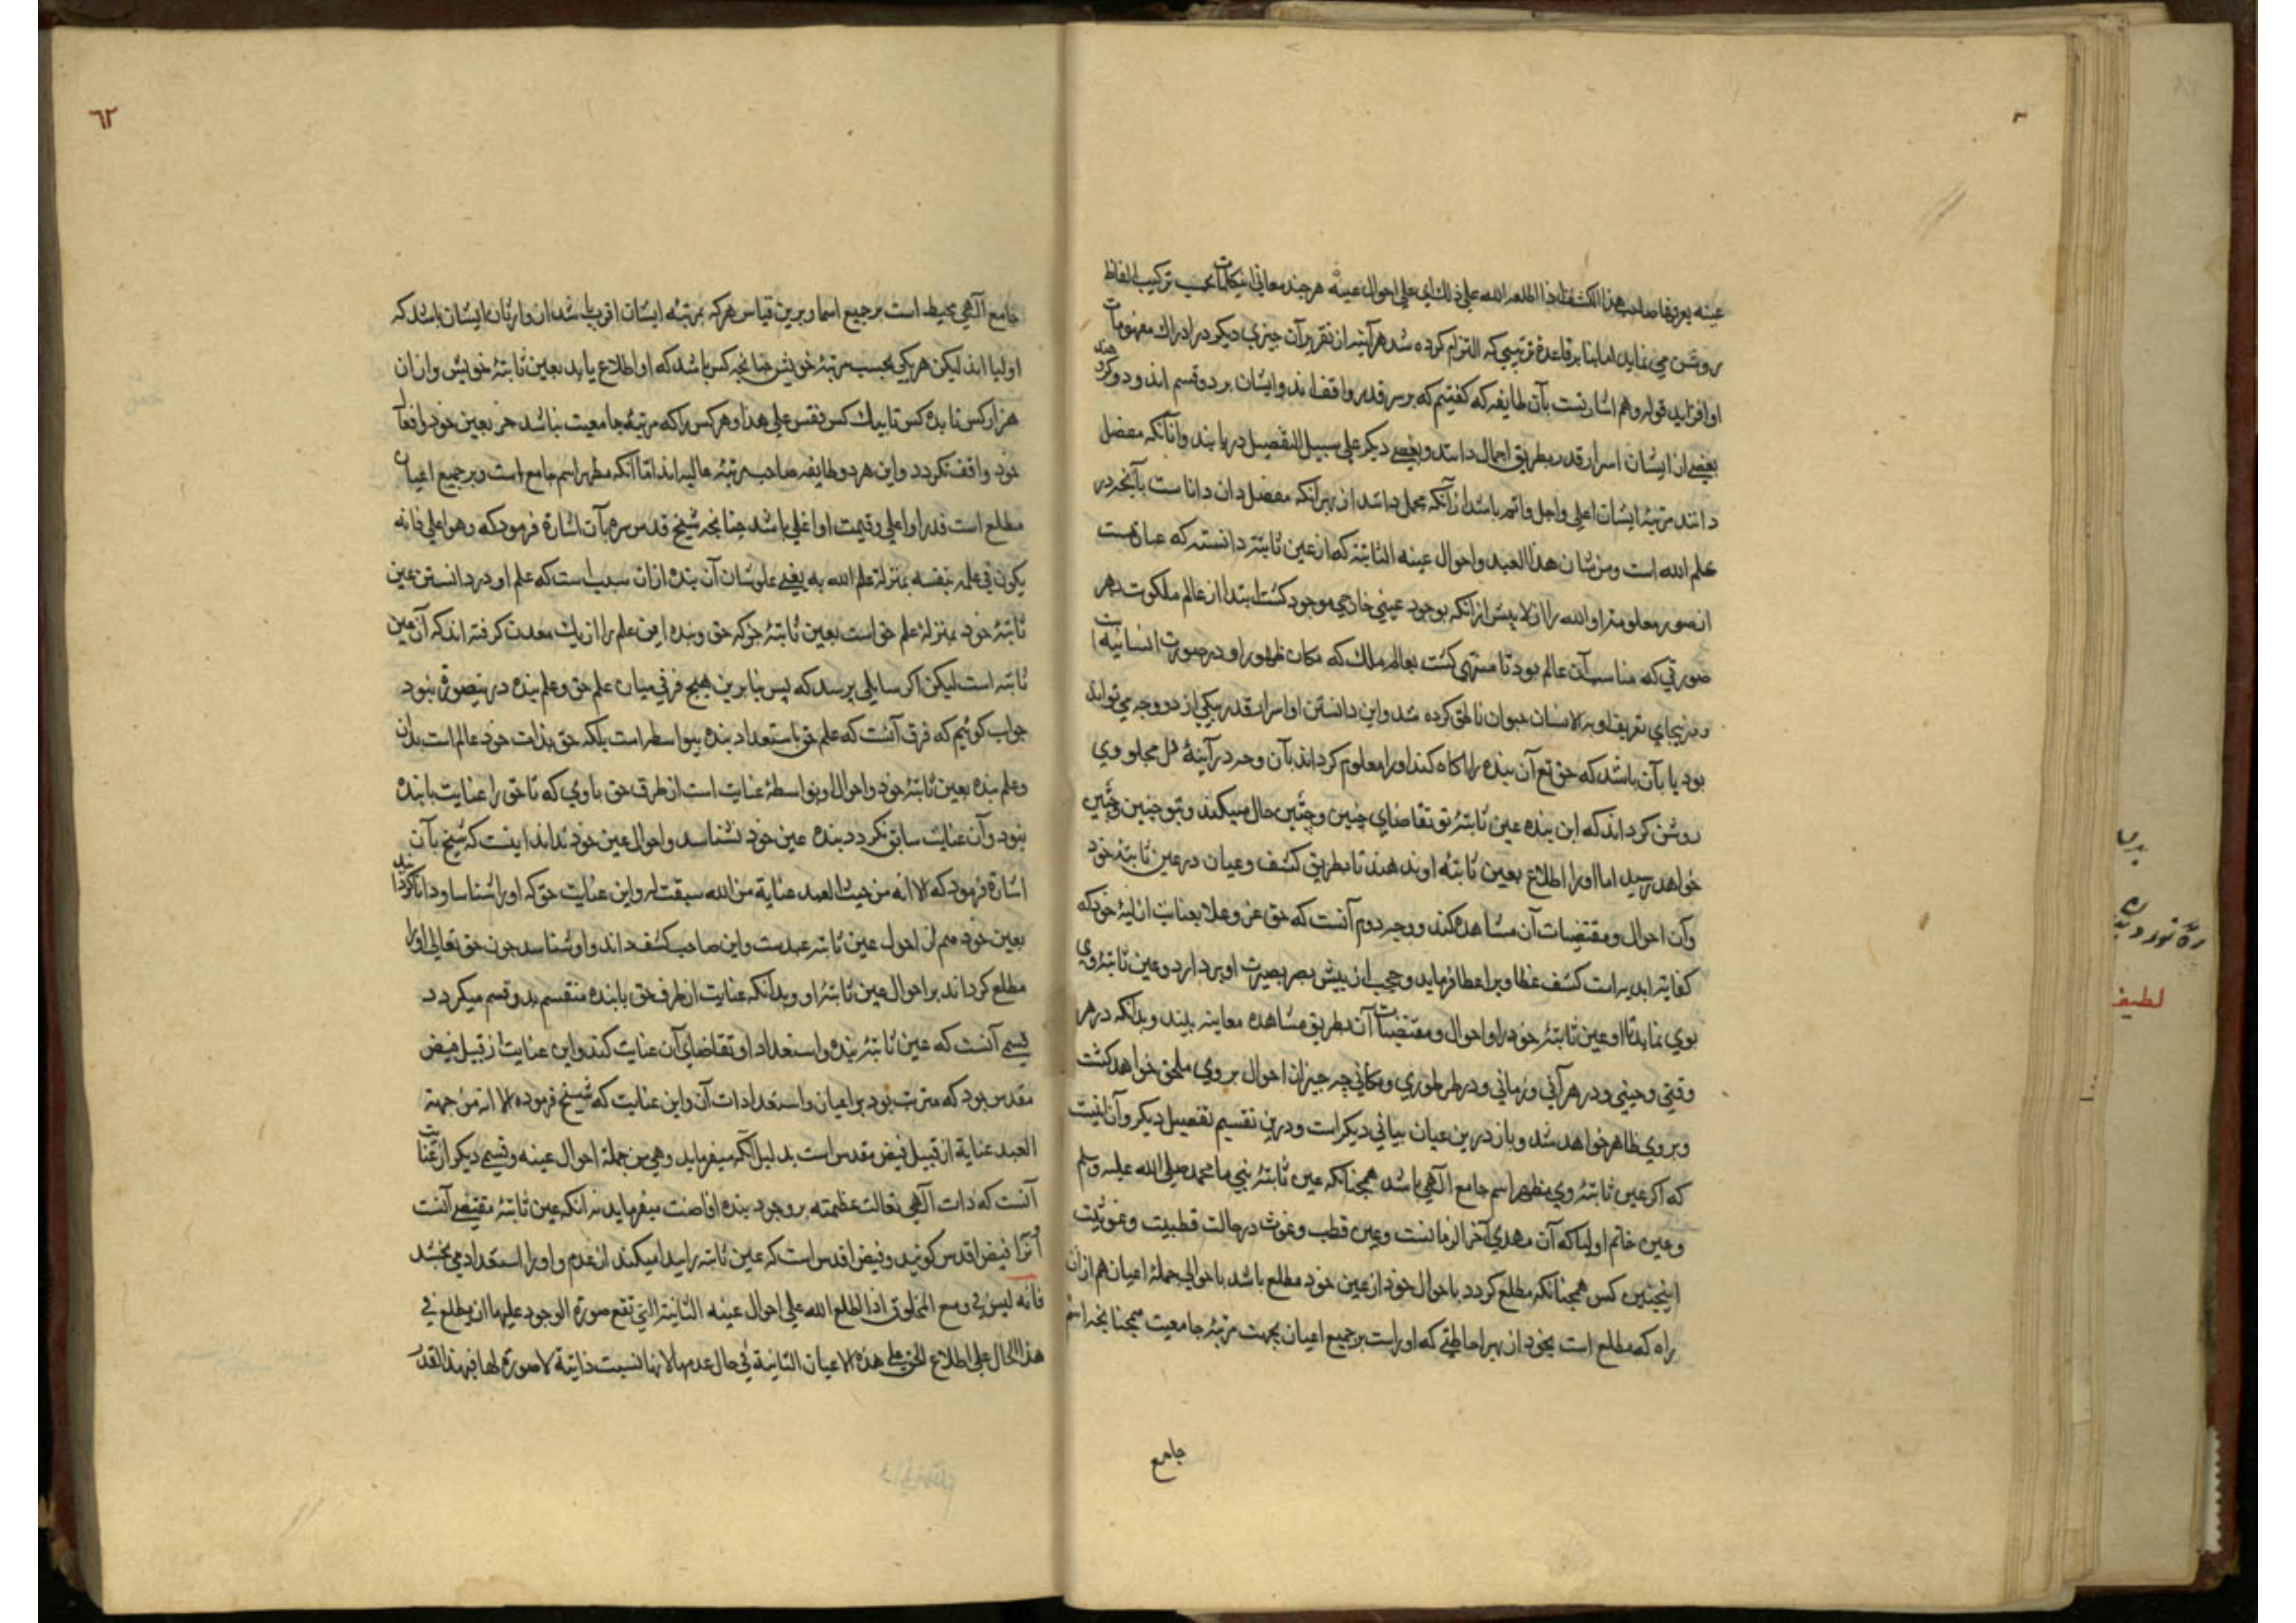 عینه یعرفها صاحب هذا الکشف اذا اطلعه الله علی ذلک ای علی احوال عینه هرچند معانی این کلمات بحسب ترکیب الفاظ
روشن می نماید اما بنا بر قاعدهٔ ترتیبی که التزام کرده شد هر آینه از تقریر آن چیزی دیکر در ادراک مفهومات
او افزاید قوله وهم اشارتست بآن طایفه که کفتیم که بر سر قدر واقف اند وایشان بر دو قسم اند ودو کروهند
بعضی از ایشان اسرار قدر بطریق اجمال دانند وبعضی دیکر علی سبیل التفصیل دریابند وآنانکه مفصل
دانند مرتبهٔ ایشان اعلی واجل واتم باشد از آنکه مجمل داند از بهر آنکه مفصل دان داناست بآنچه در
علم الله است ومن شان هذا العبد واحوال عینه الثابتة که از عین ثابته دانسته که عبارتست
از صور معلومیة او الله را ازلا پیش از آنکه بوجود عینی خارجی موجود کشت ابتدا از عالم ملکوت بهر
صورتی که مناسب آن عالم بود تا منتهی کشت بعالم ملک که مکان ظهور او در صورت انسانیه است
ودرینجای تعریف او به الانسان حیوان ناطق کرده شد واین دانستن او اسرار قدر بیکی از دو وجه می تواند
بود یا بآن باشد که حق تع آن بنده را آکاه کند او را معلوم کرداند بآن وجه در آینهٔ دل مجلو وی
روشن کرداند که این بنده عین ثابتهٔ تو تقاضای چنین وچنین حال میکند وبتو چنین وچنین
خواهد رسید اما او را اطلاع بعین ثابتهٔ او ندهند تا بطریق کشف وعیان در عین ثابتهٔ خود
وآن احوال ومقتضیات آن مشاهده کند ووجه دوم آنست که حق عز وعلا بعنایت ازلیهٔ خود که
کفایة ابدیه است کشف غطا ویرا عطا فرماید وحجب از پیش بصر بصیرت او بردارد وعین ثابتهٔ وی
بوی نماید تا او عین ثابتهٔ خود را واحوال ومقتضیات آن بطریق مشاهده معاینه بیند وبدانکه در هر
وقتی وحینی ودر هر آنی وزمانی ودر هر طوری ومکانی چه چیز از احوال بر وی ملحق خواهد کشت
وبر وی ظاهر خواهد شد وباز درین عیان بیانی دیکر است ودرین تقسیم تفصیل دیکر وآن اینست
که اکر عین ثابتهٔ وی مظهر اسم جامع الهی باشد همچنانکه عین ثابتهٔ نبی ما محمد صلی الله علیه وسلم
وعین خاتم اولیا که آن مهدی آخر الزمانست وعین قطب وغوث در حالت قطبیت وغوثیت
اینچنین کس همچنانکه مطلع کردد باحوال خود از عین خود مطلع باشد باحوالی جملهٔ اعیان هم از آن
راه که مطلع است بخود از بهر احاطتی که او راست بر جمیع اعیان بجهت مرتبهٔ جامعیت همچنانچه اسم
جامع
٦٢
جامع آلهی محیط است بر جمیع اسما وبرین قیاس هرکه بمرتبه ایشان اقرب باشد از وارثان ایشان باشد که
اولیا اند لیکن هر یکی بحسب مرتبهٔ خویش چنانچه کس باشد که او اطلاع یابد بعین ثابتهٔ خویش واز ان
هزار کس تا بده کس تا بیک کس فقس علی هذا وهرکس را که مرتبهٔ جامعیت نباشد جز بعین خود وافعال
خود واقف نکردد واین هر دو طایفه صاحب مرتبهٔ عالیه اند اما آنکه مظهر اسم جامع است وبر جمیع اعیان
مطلع است قدر او اعلی وقیمت او اغلی باشد چنانچه شیخ قدس سره بآن اشارة فرمود که وهو اعلی فانه
یکون فی علمه بنفسه بمنزلة علم الله به یعنی علو شان آن بنده از آن سبب است که علم او در دانستن عین
ثابتهٔ خود بمنزلة علم حق است بعین ثابتهٔ جز که حق وبنده این علم را از یک معدن کرفته اند که آن عین
ثابته است لیکن اکر سایلی پرسد که پس بنا برین هیچ فرقی میان علم حق وعلم بنده درینصورة نبود
جواب کوئیم که فرق آنست که علم حق باستعداد بنده بیواسطه است بلکه حق بذات خود عالم است بدان
وعلم بنده بعین ثابتهٔ خود واحوال او بواسطهٔ عنایت است از طرف حق با وی که تا حق را عنایت با بنده
نبود وآن عنایت سابق نکردد بنده عین خود نشناسد واحوال عین خود نداند اینست که شیخ بآن
اشارة فرمود که الا انه من جهة العبد عنایة من الله سبقت له واین عنایت حق که او را شناسا ودانا کردانید
بعین خود هم از احوال عین ثابته عبدست واین صاحب کشف داند واو شناسد چون حق تعالی او را
مطلع کرداند بر احوال عین ثابتهٔ او وبدانکه عنایت از طرف حق با بنده منقسم بدو قسم میکردد
قسمی آنست که عین ثابتهٔ بنده واستعداد او تقاضای آن عنایت کند واین عنایت از قبیل فیض
مقدس بود که مترتب بود بر اعیان واستعدادات آن واین عنایت که شیخ فرموده الا انه من جهة
العبد عنایة از قبیل فیض مقدس است بدلیل آنکه میفرماید وهی من جملة احوال عینه وقسمی دیکر از عنایت
آنست که ذات آلهی تعالت عظمته بر وجود بنده افاضت میفرماید نه آنکه عین ثابتهٔ مقتضی آنست
وآنرا فیض اقدس کویند وفیض اقدس است که عین ثابته را پیدا میکند از عدم واو را استعداد می بخشد
فانه لیس فی وسع المخلوق اذا اطلعه الله علی احوال عینه الثابتة التی تقع صورة الوجود علیها ان یطلع فی
هذا الحال علی اطلاع الحق علی هذه الاعیان الثابتة فی حال عدمها لانها نسبت ذاتیة لا صورة لها فبهذا القدر
لطیفه